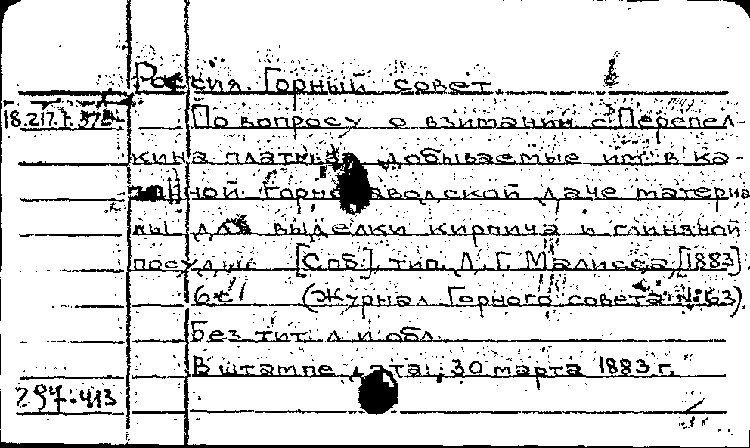 Россия. Горный совет.
18.217.7.372
По вопросу о взимании с Перепел-
кина платы за добываемые им в ка-
зенной горнозаводской даче материа
лы для выделки кирпича и глиняной
посуды. [Спб.], тип. Д. Г. Малисса, [1883]
6 с. (Журнал Горного совета. № 63)
Без тит. л. и обл.
В штампе дата: 30 марта 1883 г.
297:413